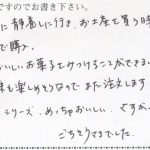 ですのでお書き下さい。
に静養しに行き、お土産を買う時
で購入。
おいしいお菓子をみつけることができま
味も楽しめそうなので また注文します
シリーズ、めっちゃおいしい、ですが
ごちそうさまでした。